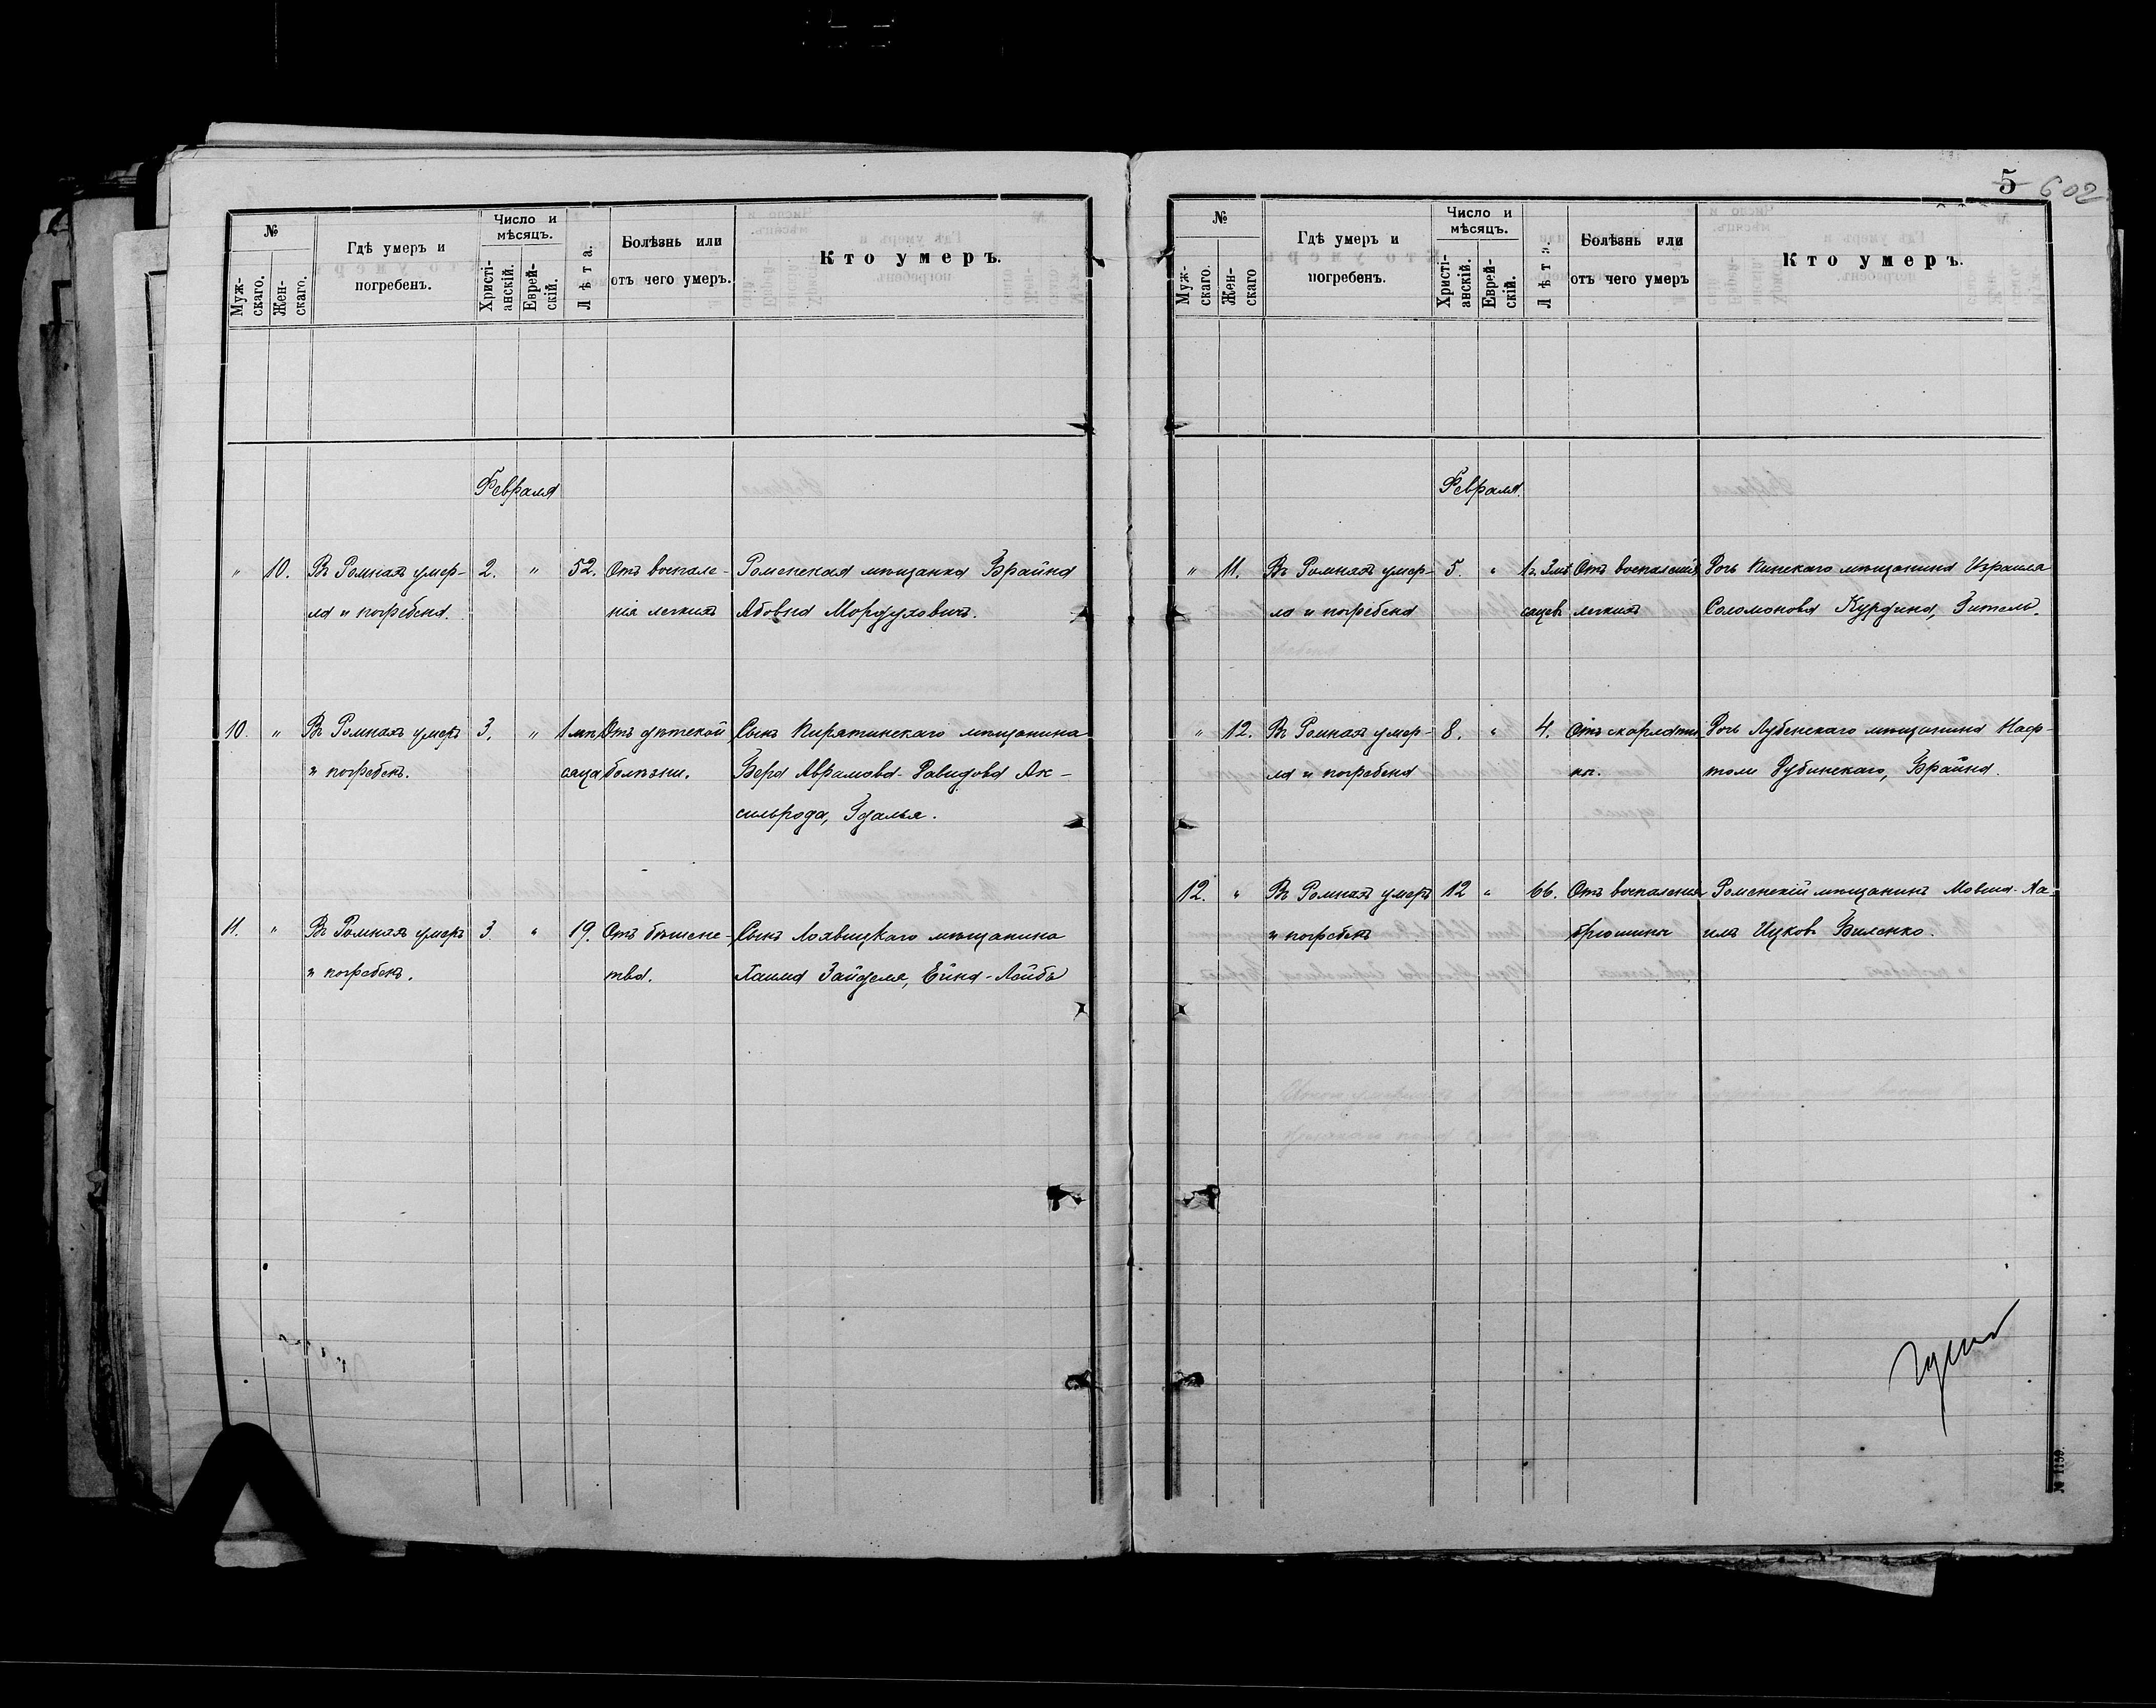 №
Муж-
скаго.
Жен-
скаго.
Гдѣ умеръ и
погребенъ.
Число и
мѣсяцъ.
Христі-
анскій.
Еврей-
скій.
Лѣта.
Болѣзнь или
отъ чего умеръ.
Кто умеръ.
Февраля
" 10. Въ Ромнахъ умер- 2. " 52. Отъ воспале- Роменская мѣщанка Брайна
ла и погребена. нія легкихъ Абовна Мордуховичъ.
10. " Въ Ромнахъ умеръ 3. " 1 мѣ- Отъ дѣтской Сынъ Пирятинскаго мѣщанина
и погребенъ. сяца болѣзни. Бера Аврамова-Давидова Ак-
сильрода, Гдалья.
11. " Въ Ромнахъ умеръ 3. " 19. Отъ бѣшенс- Сынъ Лохвицкаго мѣщанина
и погребенъ. тва. Хаима Зайделя, Ейна-Лейбъ
5 602
№
Муж-
скаго.
Жен-
скаго
Гдѣ умеръ и
погребенъ.
Число и
мѣсяцъ.
Христі-
анскій.
Еврей-
скій.
Лѣта.
Болѣзнь или
отъ чего умеръ
Кто умеръ.
Февраля
" 11. Въ Ромнахъ умер- 5. " 1 г. 3 мѣ- Отъ воспаленія Дочь Пинскаго мѣщанина Израиля
ла и погребена сяцевъ легкихъ Соломонова Курдина, Зитель.
" 12. Въ Ромнахъ умер- 8. " 4. Отъ скарлати- Дочь Лубенскаго мѣщанина Наф-
ла и погребена ны. толи Рубинскаго, Брайна.
12. " Въ Ромнахъ умеръ 12 " 66. Отъ воспаленія Роменскій мѣщанинъ Мовша-Ха-
и погребенъ брюшины имъ Ицковъ Биленко.
№ 1159.